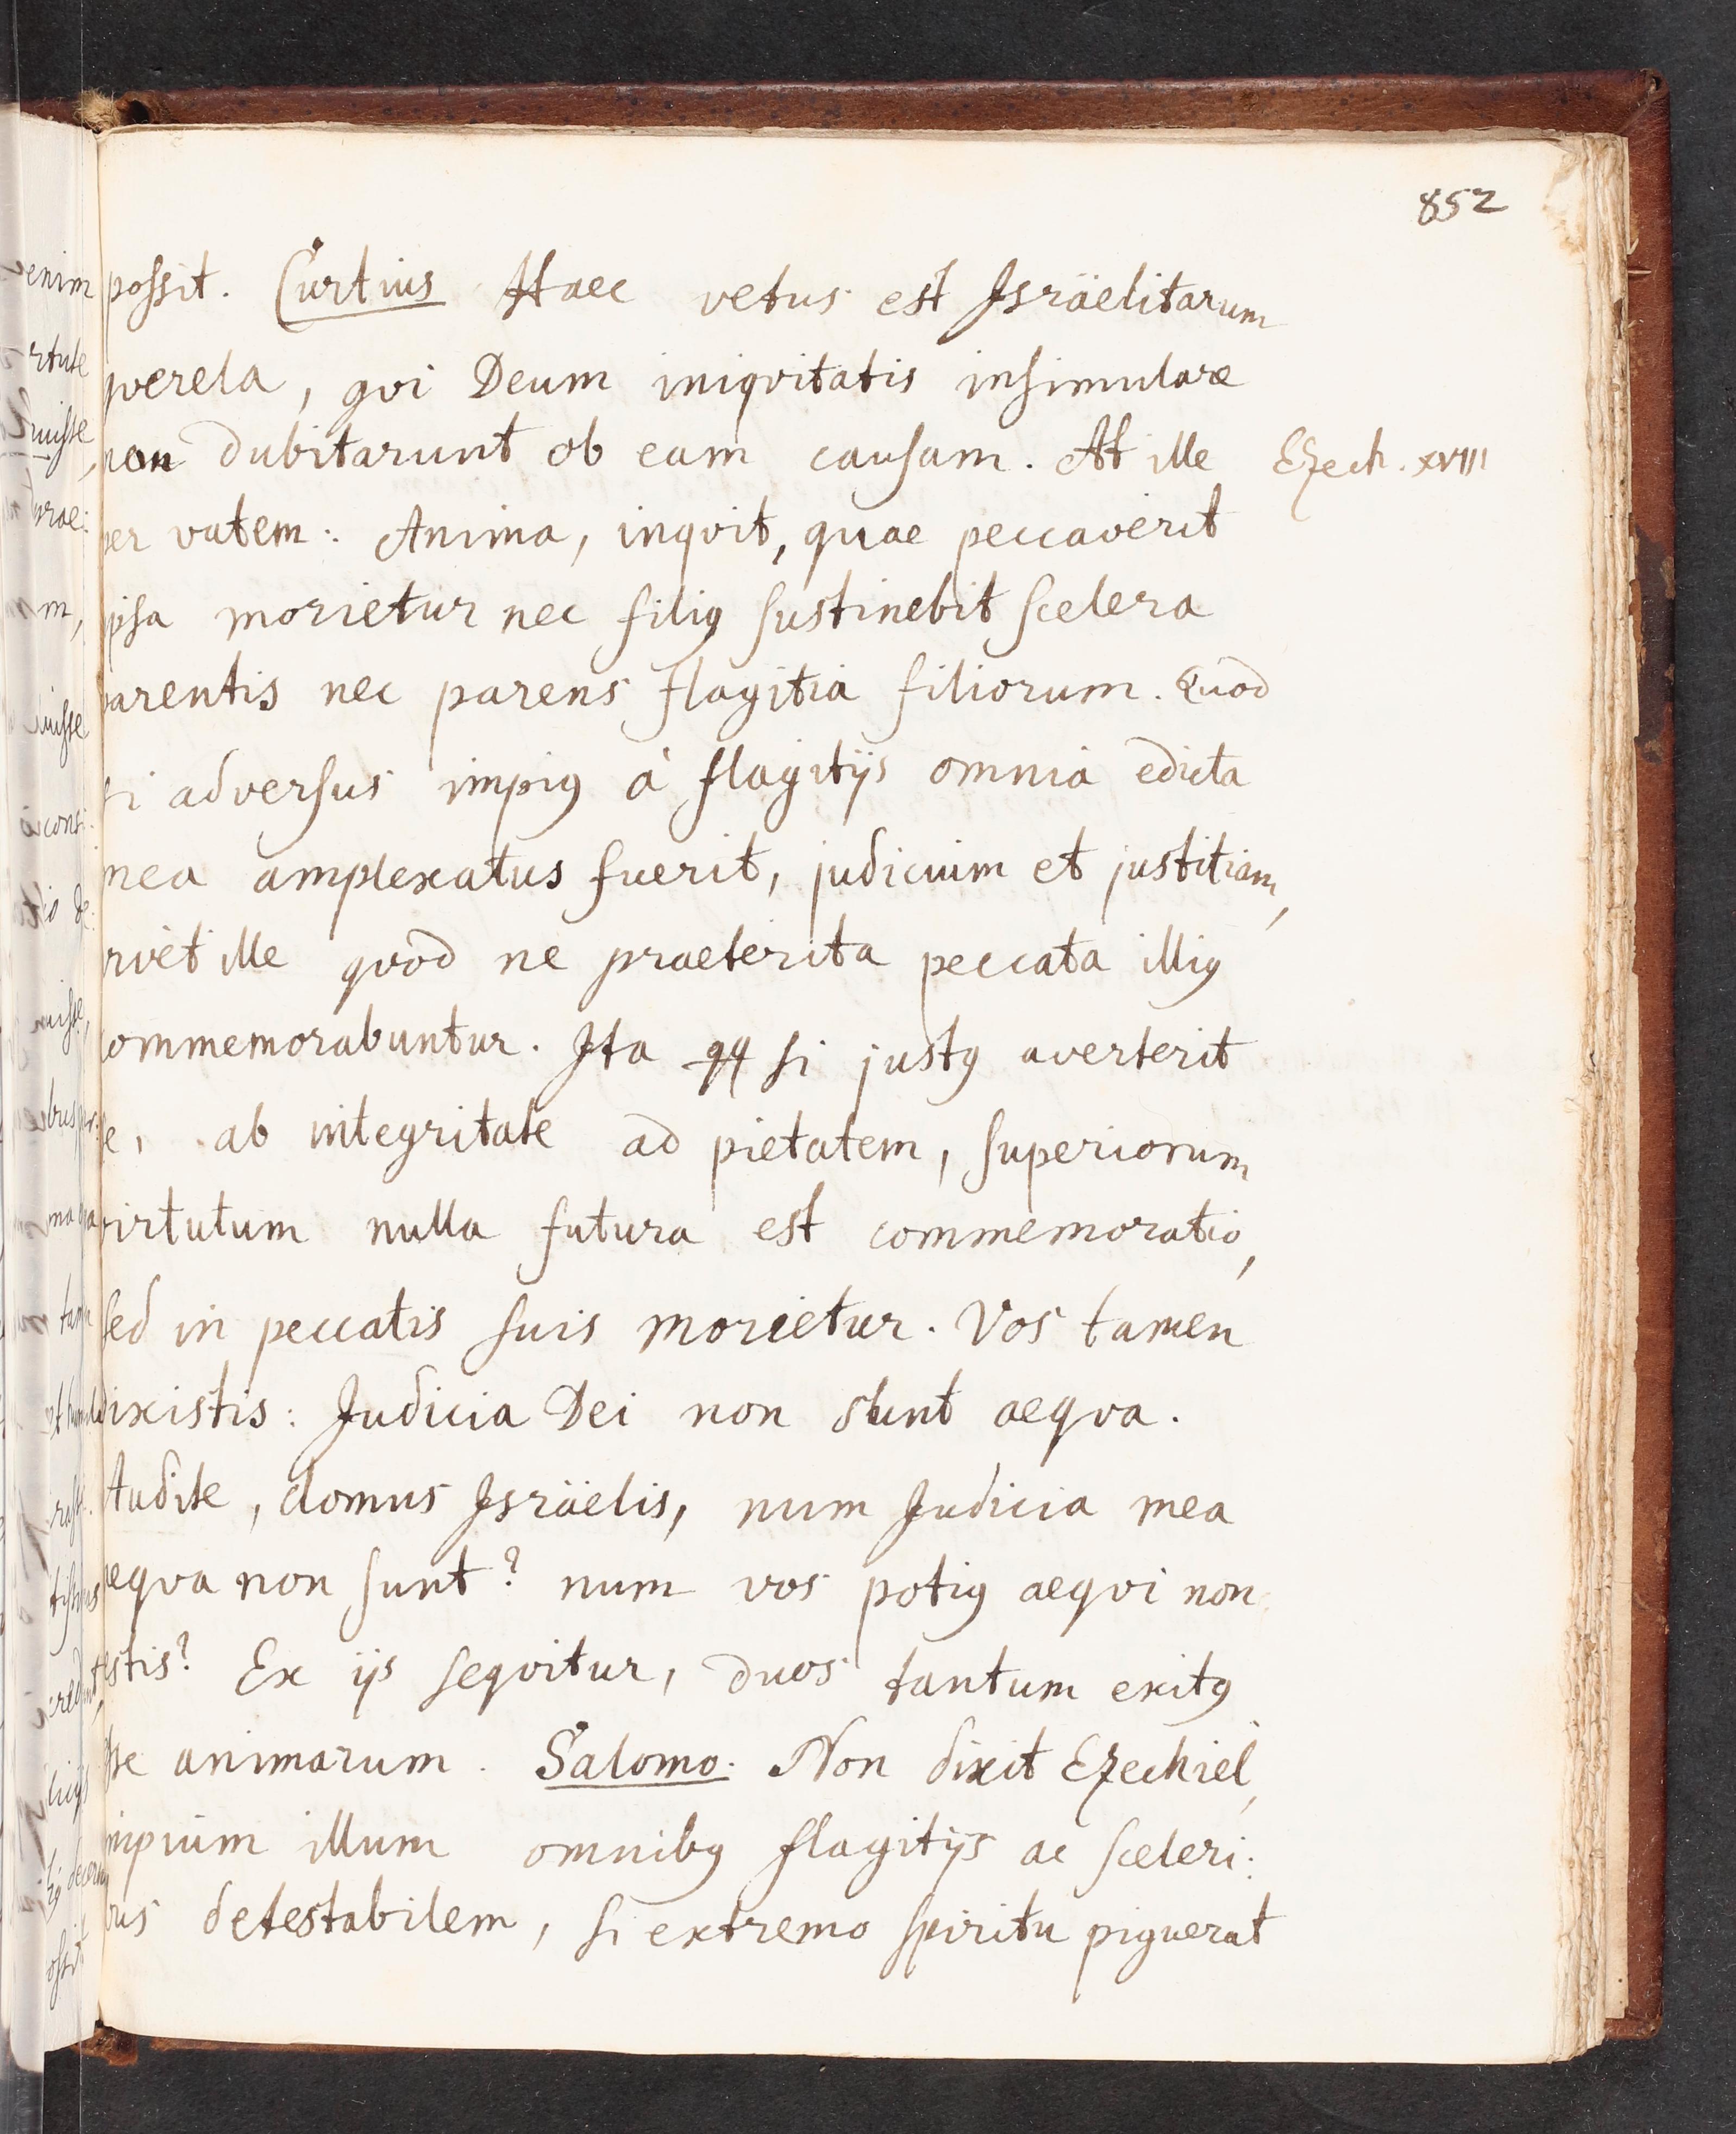 852
possit. Curtius Haec vetus est Isräelitarum
qverela, qvi Deum iniqvitatis insimulare
non dubitarunt ob eam causam. At ille
Ezech. XVIII
per vatem: Anima, inqvit, quae peccaverit
ipsa morietur nec filiꝰ sustinebit scelera
parentis nec parens flagitia filiorum. Quod
si adversus impiꝰ à flagitijs omnia edicta
mea amplexatus fuerit, judicium et justitiam,
vivet ille qvod ne praeterita peccata illiꝰ
commemorabuntur. Ita qq si justꝰ averterit
se, ab integritate ad pietatem, superiorum
virtutum nulla futura est commemoratio,
sed in peccatis suis morietur. Vos tamen
dixistis: Judicia Dei non sunt aeqva.
Audite, domus Isräelis, num Judicia mea
aeqva non sunt? num vos potiꝰ aeqvi non
estis? Ex ijs seqvitur, duos tantum exitꝰ
esse animarum. Salomo. Non dixit Ezechiel,
impium illum omnibꝰ flagitijs ac sceleri:
bus detestabilem, si extremo spiritu piguerat